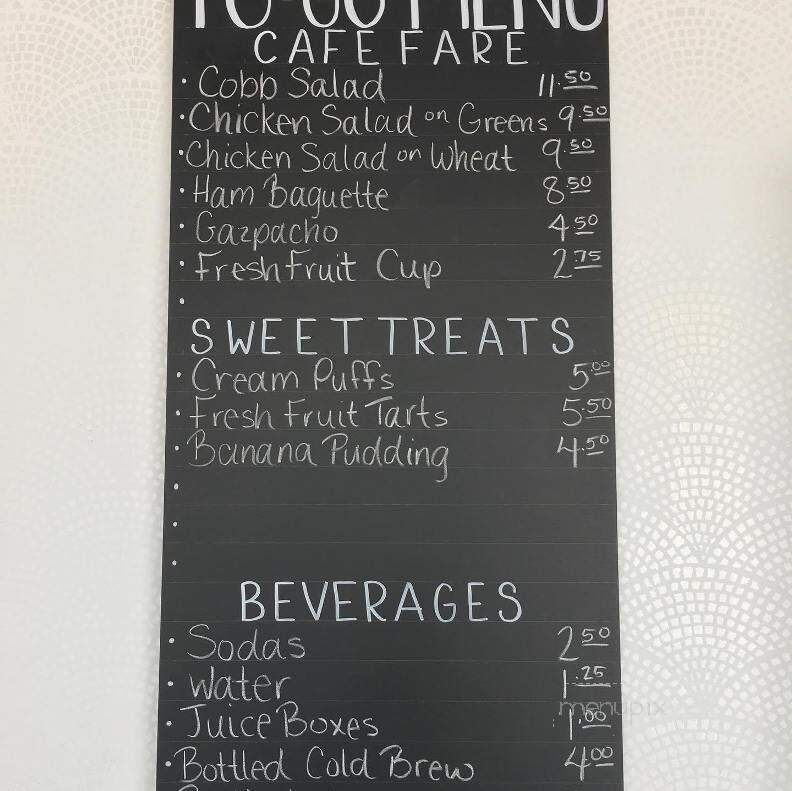 TO-GO MENU
CAFE FARE
• Cobb Salad 11.50
• Chicken Salad on Greens 9.50
• Chicken Salad on Wheat 9.50
• Ham Baguette 8.50
• Gazpacho 4.50
• Fresh Fruit Cup 2.75
•
SWEET TREATS
• Cream Puffs 5.00
• Fresh Fruit Tarts 5.50
• Banana Pudding 4.50
•
•
•
BEVERAGES
• Sodas 2.50
• Water 1.25
menupix
• Juice Boxes 1.00
• Bottled Cold Brew 4.00